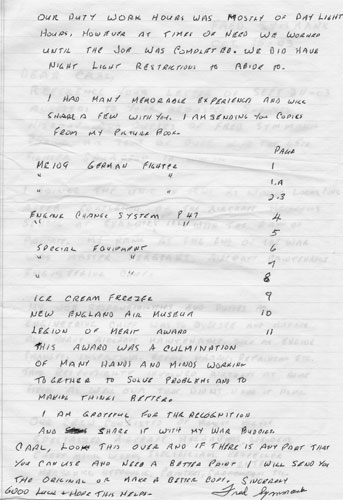 OUR DUTY WORK HOURS WAS MOSTLY OF DAY LIGHT
HOURS, HOWEVER AT TIMES OF NEED WE WORKED
UNTIL THE JOB WAS COMPLETED. WE DID HAVE
NIGHT LIGHT RESTRICTIONS TO ABIDE TO.
I HAD MANY MEMORABLE EXPERIENCE AND WILL
SHARE A FEW WITH YOU. I AM SENDING YOU COPIES
FROM MY PICTURE BOOK-
PAGE
ME109 GERMAN FIGHTER 1
" " 1.A
" " 2-3
ENGINE CHANGE SYSTEM P47 4
5
SPECIAL EQUIPMENT 6
" " 7
" " 8
ICE CREAM FREEZER 9
NEW ENGLAND AIR MUSEUM 10
LEGION OF MERIT AWARD 11
THIS AWARD WAS A CULMINATION
OF MANY HANDS AND MINDS WORKING
TOGETHER TO SOLVE PROBLEMS AND TO
MAKING THINGS BETTER.
I AM GRATEFUL FOR THE RECOGNITION
AND SHARE IT WITH MY WAR BUDDIES.
CARL, LOOK THIS OVER AND IF THERE IS ANY PART THAT
YOU CAN USE AND NEED A BETTER POINT I WILL SEND YOU
THE ORIGINAL OR MAKE A BETTER COPY. SINCERELY
GOOD LUCK & HOPE THIS HELPS- Fred